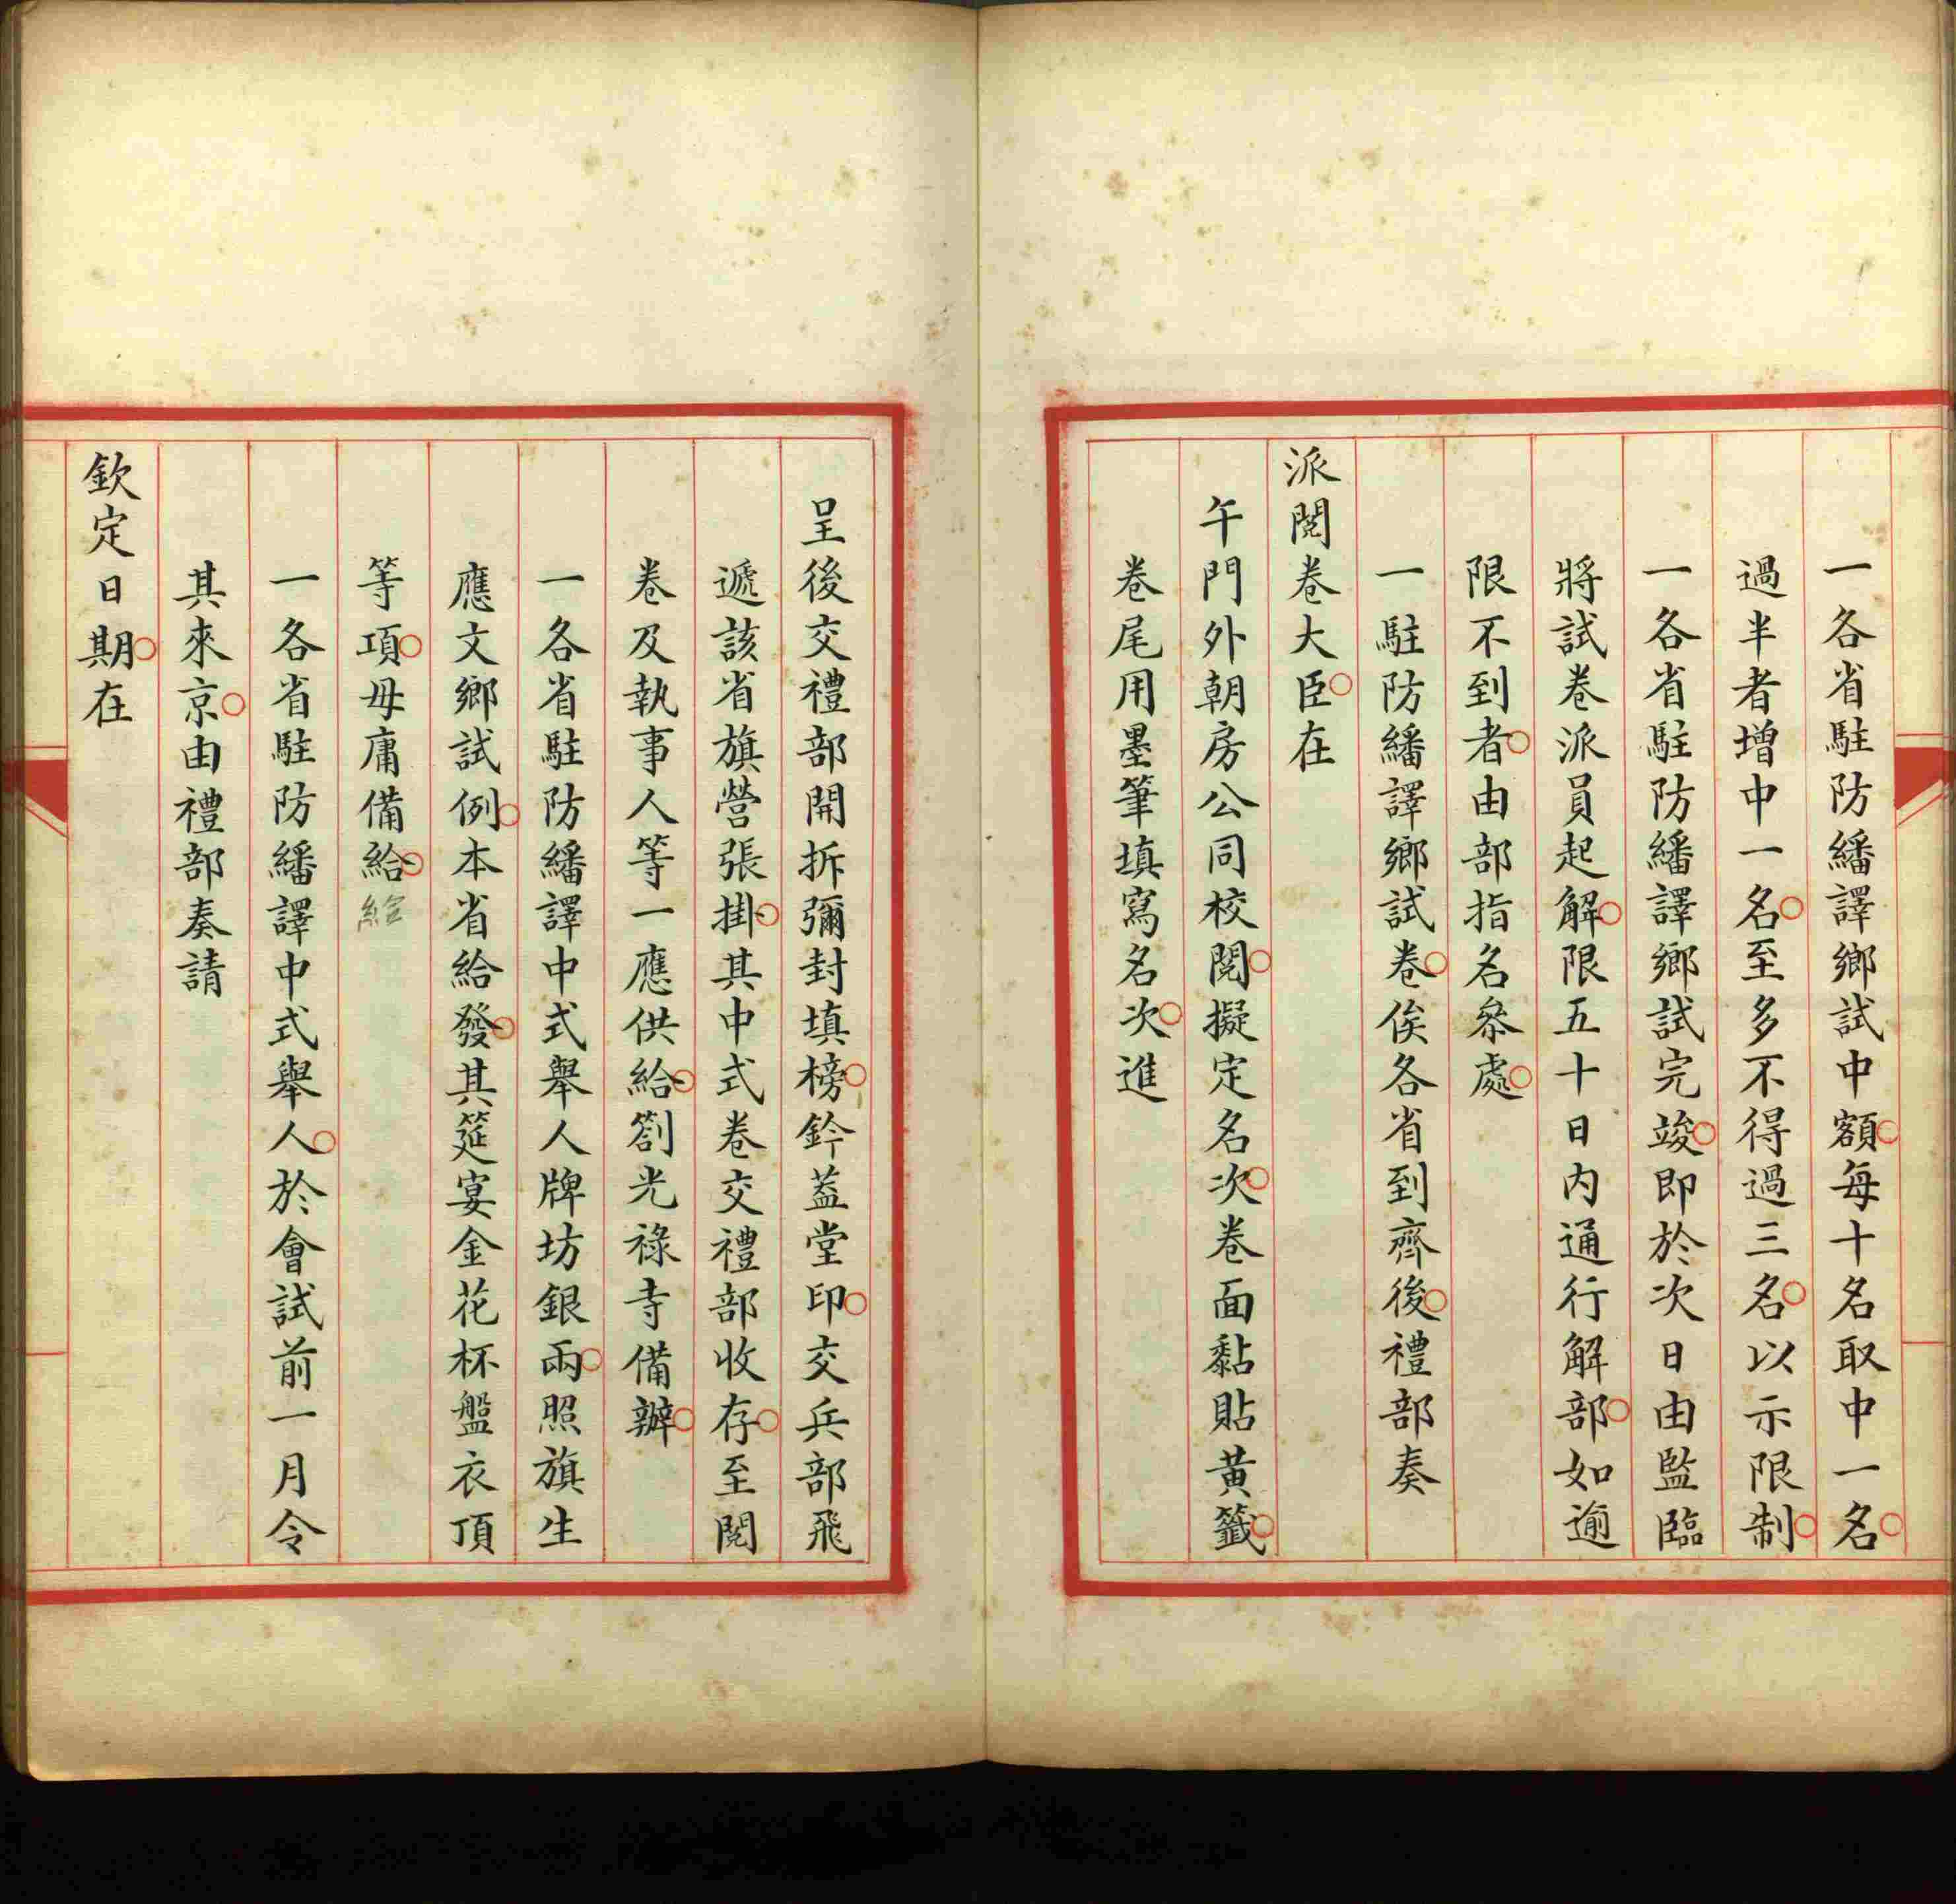 一各省駐防繙譯鄉試中額每十名取中一名
過半者增中一名至多不得過三名以示限制
一各省駐防繙譯鄉試完竣即於次日由監臨
將試卷派員起解限五十日內通行解部如逾
限不到者由部指名叅處
一駐防繙譯鄉試卷俟各省到齊後禮部奏
派閱卷大臣在
午門外朝房公同校閱擬定名次卷面黏貼黃籤
卷尾用墨筆填寫名次進
呈後交禮部開拆彌封填榜鈐蓋堂印交兵部飛
遞該省旗營張掛其中式卷交禮部收存至閱
卷及執事人等一應供給劄光祿寺備辦
一各省駐防繙譯中式舉人牌坊銀兩照旗生
應文鄉試例本省給發其筵宴金花杯盤衣頂
等項毋庸備給給
一各省駐防繙譯中式舉人於會試前一月令
其來京由禮部奏請
欽定日期在